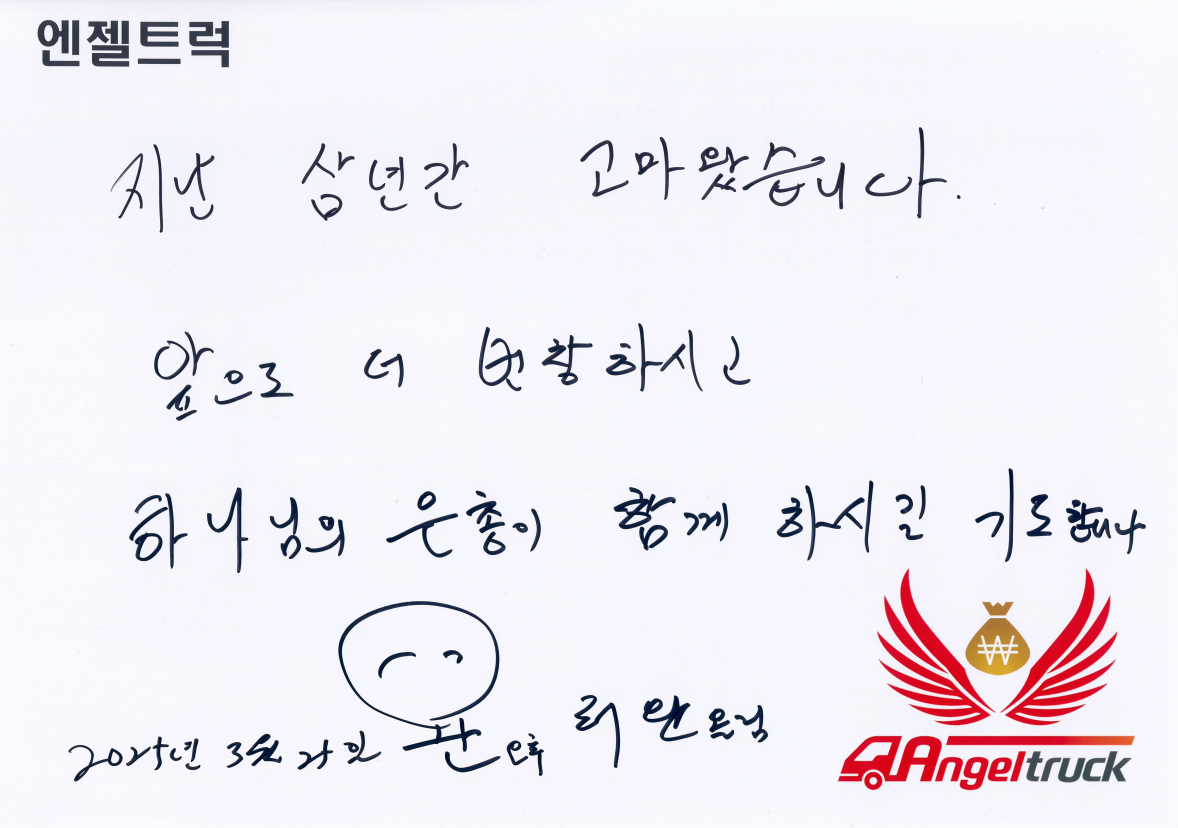 엔젤트럭
지난 삼년간 고마왔습니다.
앞으로 더 번창하시고
하나님의 은총이 함께 하시길 기도합니다
2025년 3월 25일 오후 드림
₩
Angeltruck